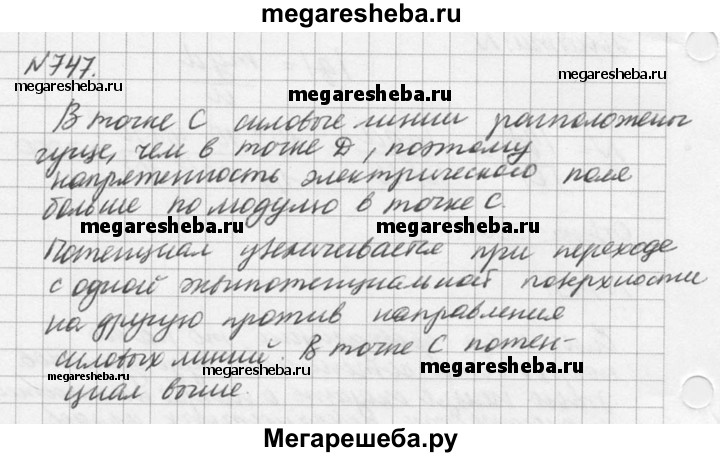 megaresheba.ru
№747.
megaresheba.ru megaresheba.ru
В точке С силовые линии расположены
гуще, чем в точке D, поэтому
напряженность электрического поля
больше по модулю в точке С.
megaresheba.ru megaresheba.ru
Потенциал увеличивается при переходе
с одной эквипотенциальной поверхности
на другую против направления
силовых линий. В точке С потен-
megaresheba.ru megaresheba.ru megaresheba.ru
циал выше.
Мегарешеба.ру